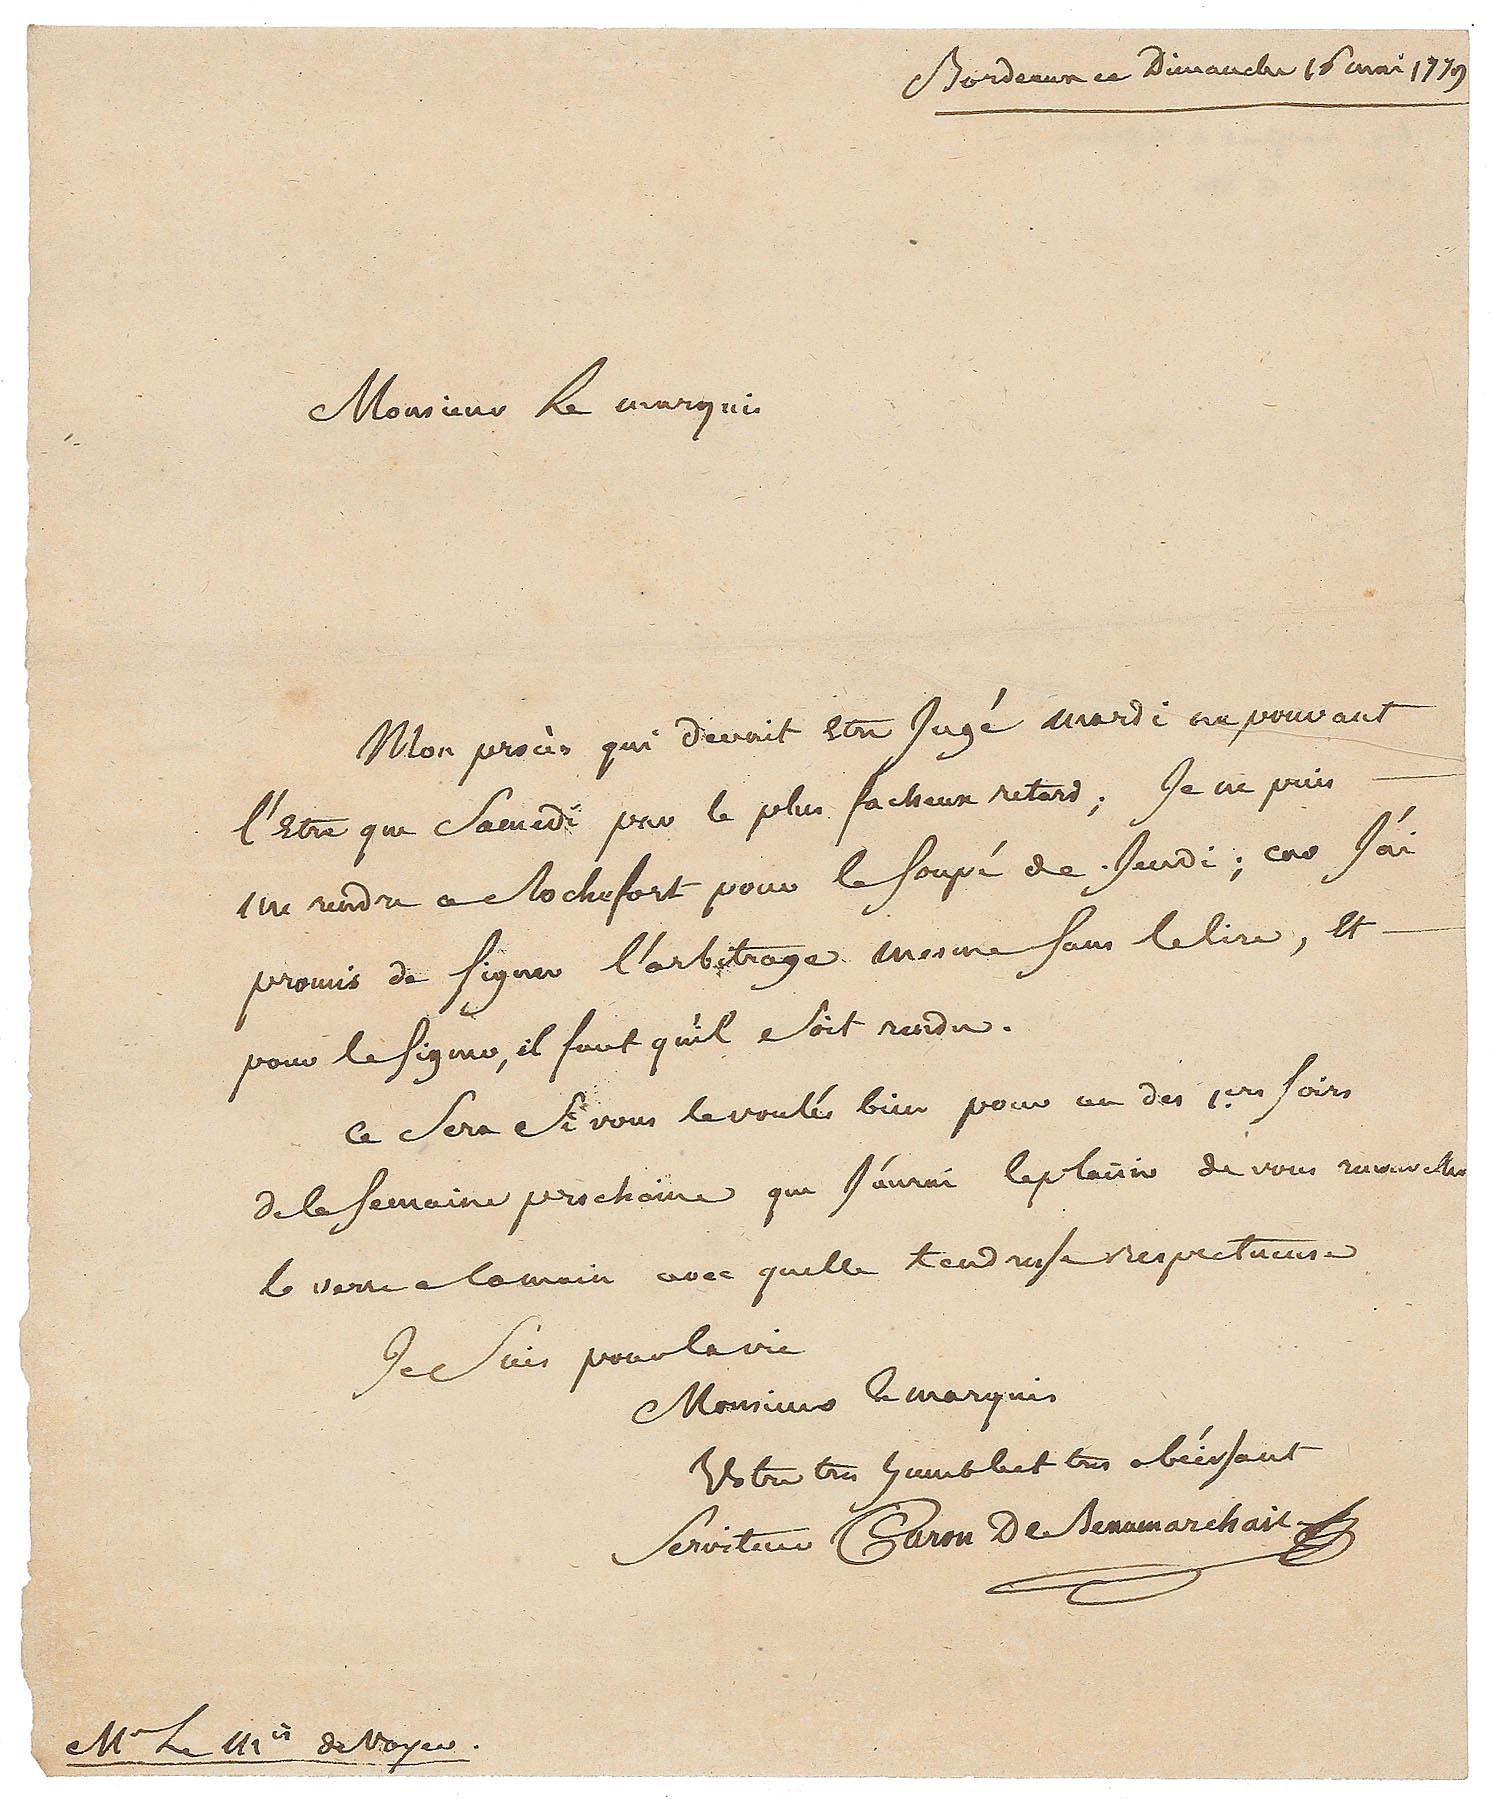 Bordeaux ce Dimanche 16 mai 1779
Monsieur Le marquis
Mon procès qui devait Etre Jugé mardi ne pouvant
l'Etre que Samedi par le plus facheux retard; Je ne puis
me rendre a Rochefort pour le soupé de Jeudi; car J'ai
promis de signer l'arbitrage mesme sans le lire, Et
pour le signer, il faut qu'il soit rendu.
Ce Sera Si vous le voulés bien pour un des 1ers soirs
de la semaine prochaine que J'aurai le plaisir de vous renouveller
le verre a la main avec quelle tendresse respectueuse
Je Suis pour la vie
Monsieur le marquis
Votre très humble et très obéissant
Serviteur Caron De Beaumarchais
Mr Le Mis de Voyer.